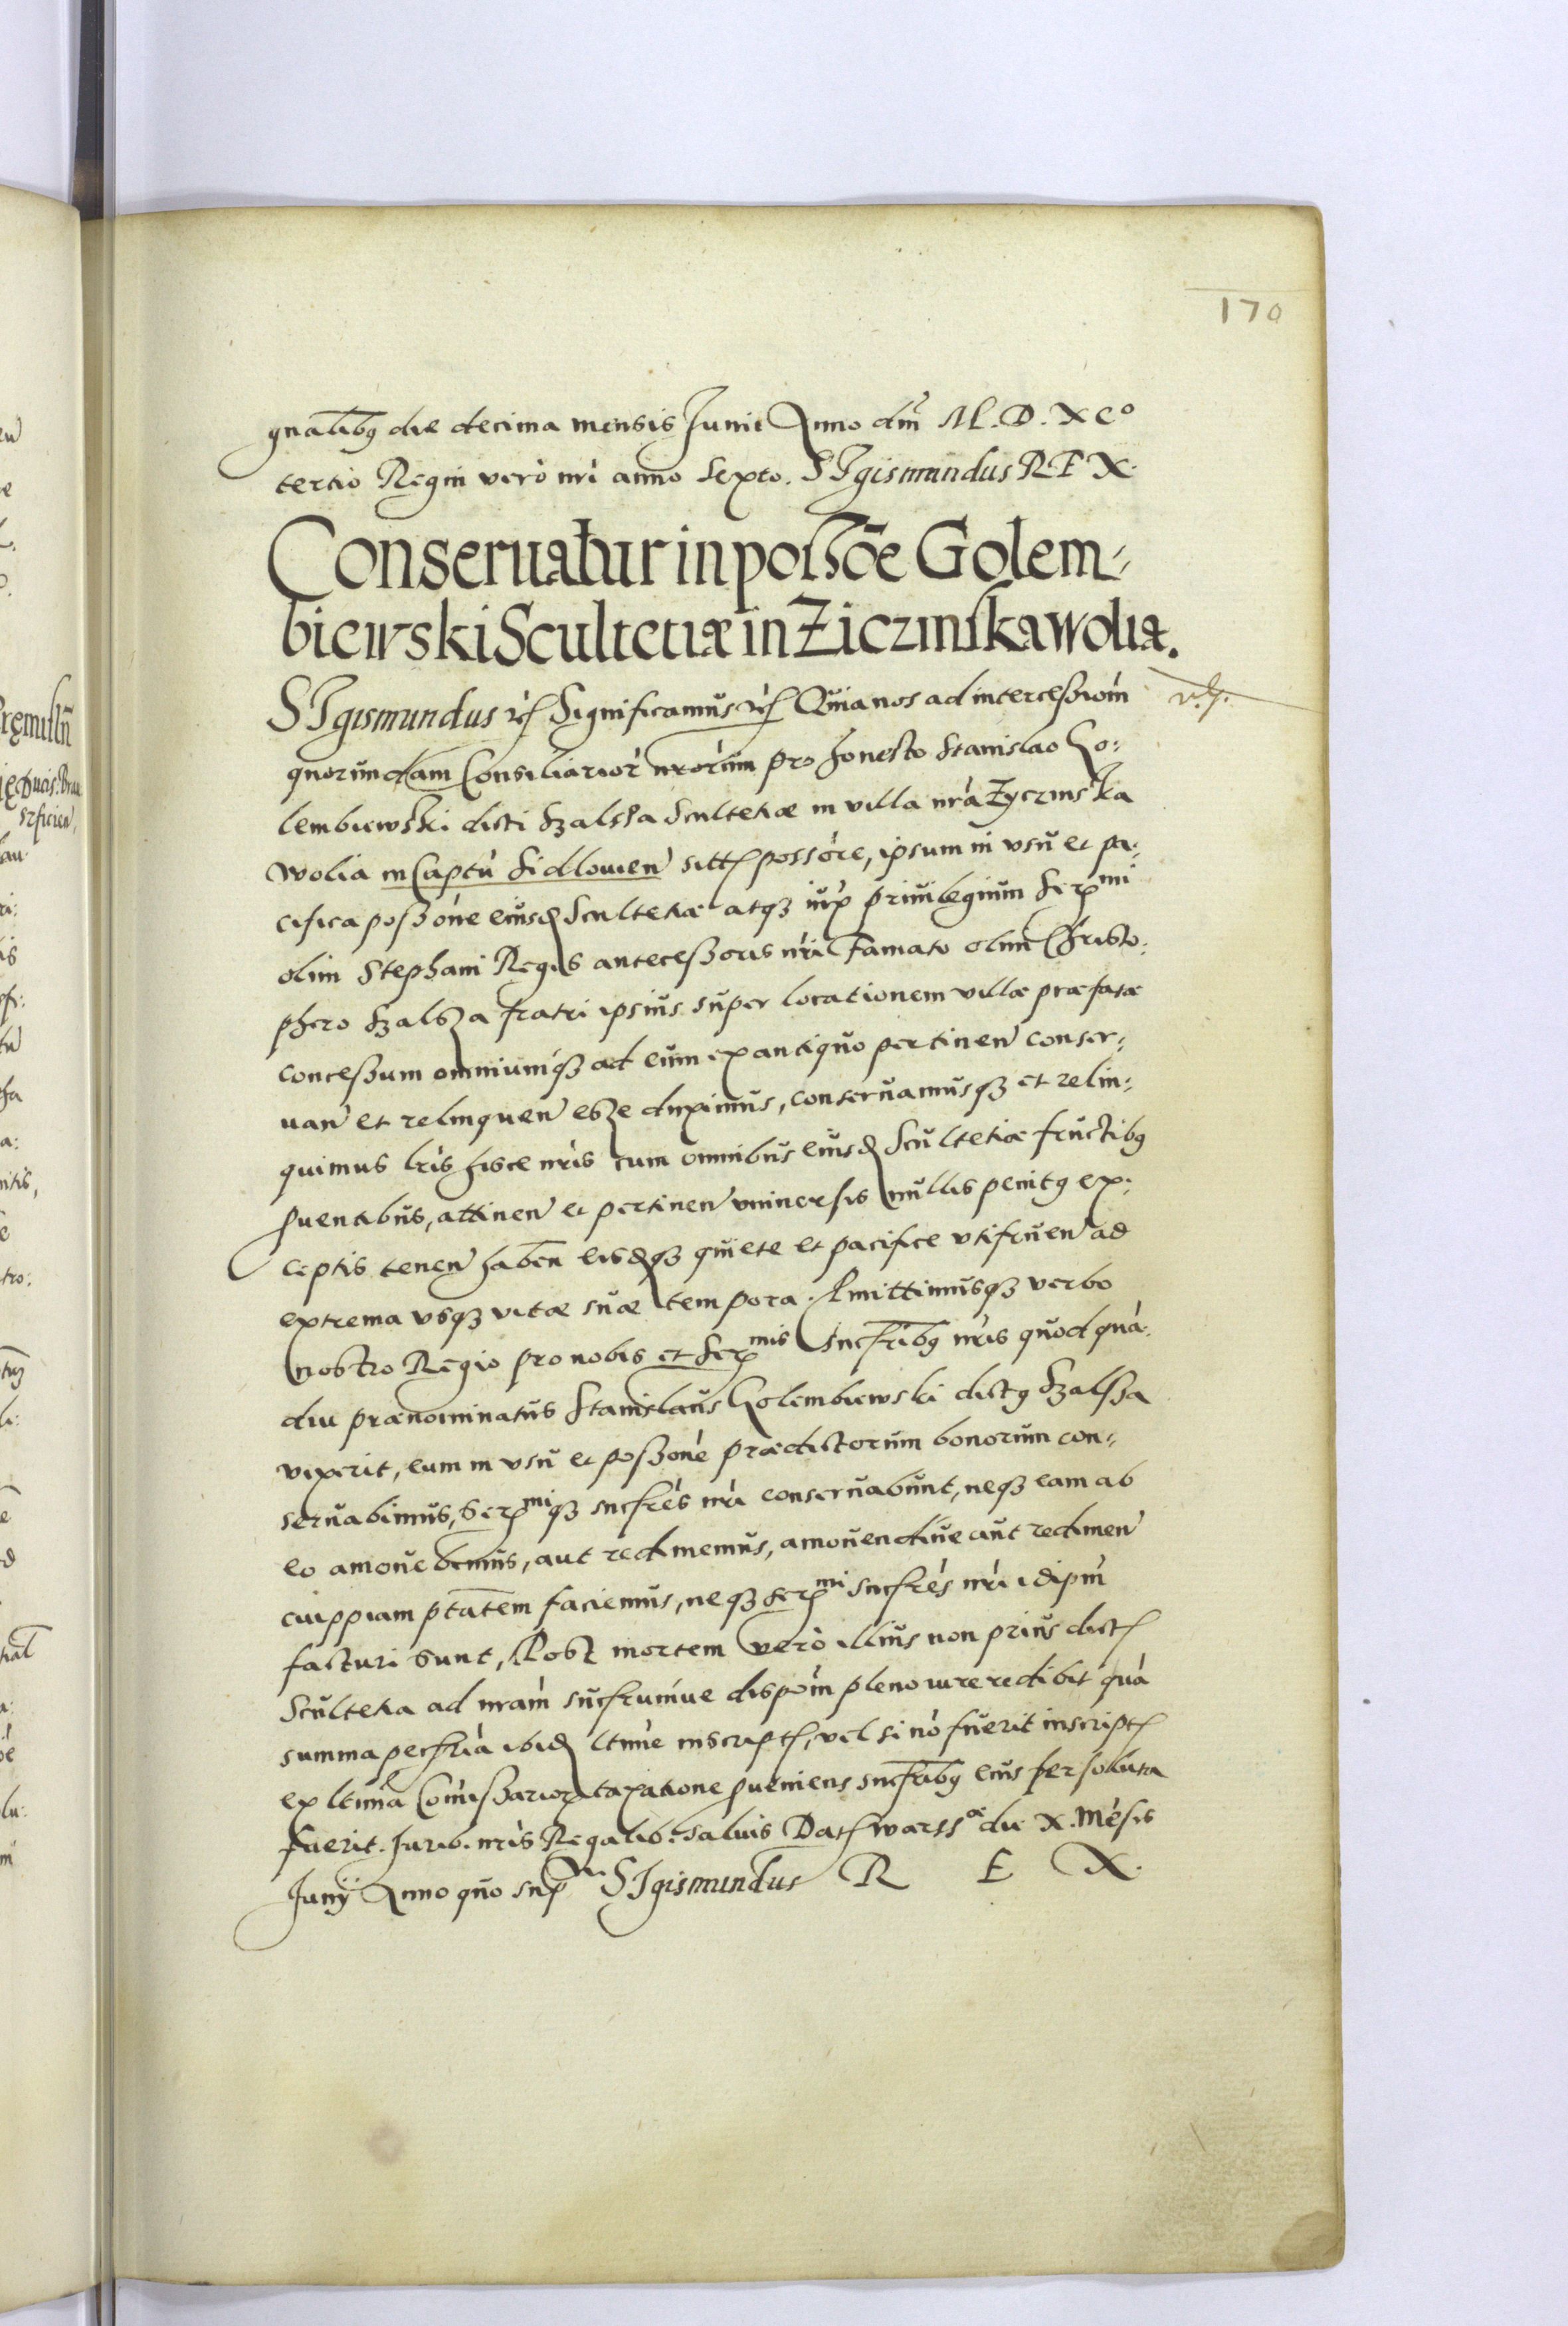 170
gnalibq die decima mensis Junii Anno dni M.D.XCo
tertio Regni vero nri anno Sexto. SIgismundus REX.
Conseruatur in possōe Golem-
biewski Scultetiæ in Ziczinska wolia.
SIgismundus etc Significamus etc Quia nos ad intercessiom
quorundam Consiliarior nrorum pro honesto Stanislao Go:
lembiewski dicti Szalssa Scultetiæ in villa nra Zyczinska
wolia in Captu Sidlouien sitt possore, ipsum in vsu et pa:
cifica possone eiusd Scultetiæ atq iux priuilegium Sermi
olim Stephani Regis antecessoris nri Famato olim Christo:
phero Szalsza fratri ipsius super locationem villæ præfatæ
concessum omniumq ad eum ex antiquo pertinen conser:
uan et relinquen esse duximus, conseruamusq et relin:
quimus lris hisce nris cum omnibus eiusd Scultetiæ fructibq
puentibus, attinen et pertinen vniuersis nullis penitq ex:
ceptis tenen haben eisdq quiete et pacifice vtifruen ad
extrema vsq vitæ suæ tempora. Pmittimusq verbo
nostro Regio pro nobis et Sermis Sucribq nris quod qua
diu prænominatus Stanislaus Golembiewski dictq Szalssa
vixerit, eum in vsu et possone prædictorum bonorum con:
seruabimus, Sermiq sucres nri conseruabunt, neq eam ab
eo amouebimus, aut redimemus, amouendiue aut redimen
cuippiam ptatem faciemus, neq Sermi sucres nri idipm
facturi sunt, Post mortem vero illius non prius dict
Scultetia ad nram sucrumue dispom pleno iure redibit qua
summa pecria ibid ltime inscript, vel si no fuerit inscript
ex ltima Comissarior taxatione pueniens sucribq eius persoluta
fuerit. Jurib. nris Regalib. saluis Dat warssæ die X. Mesis
Junij Anno quo sup SIgismundus R E X.